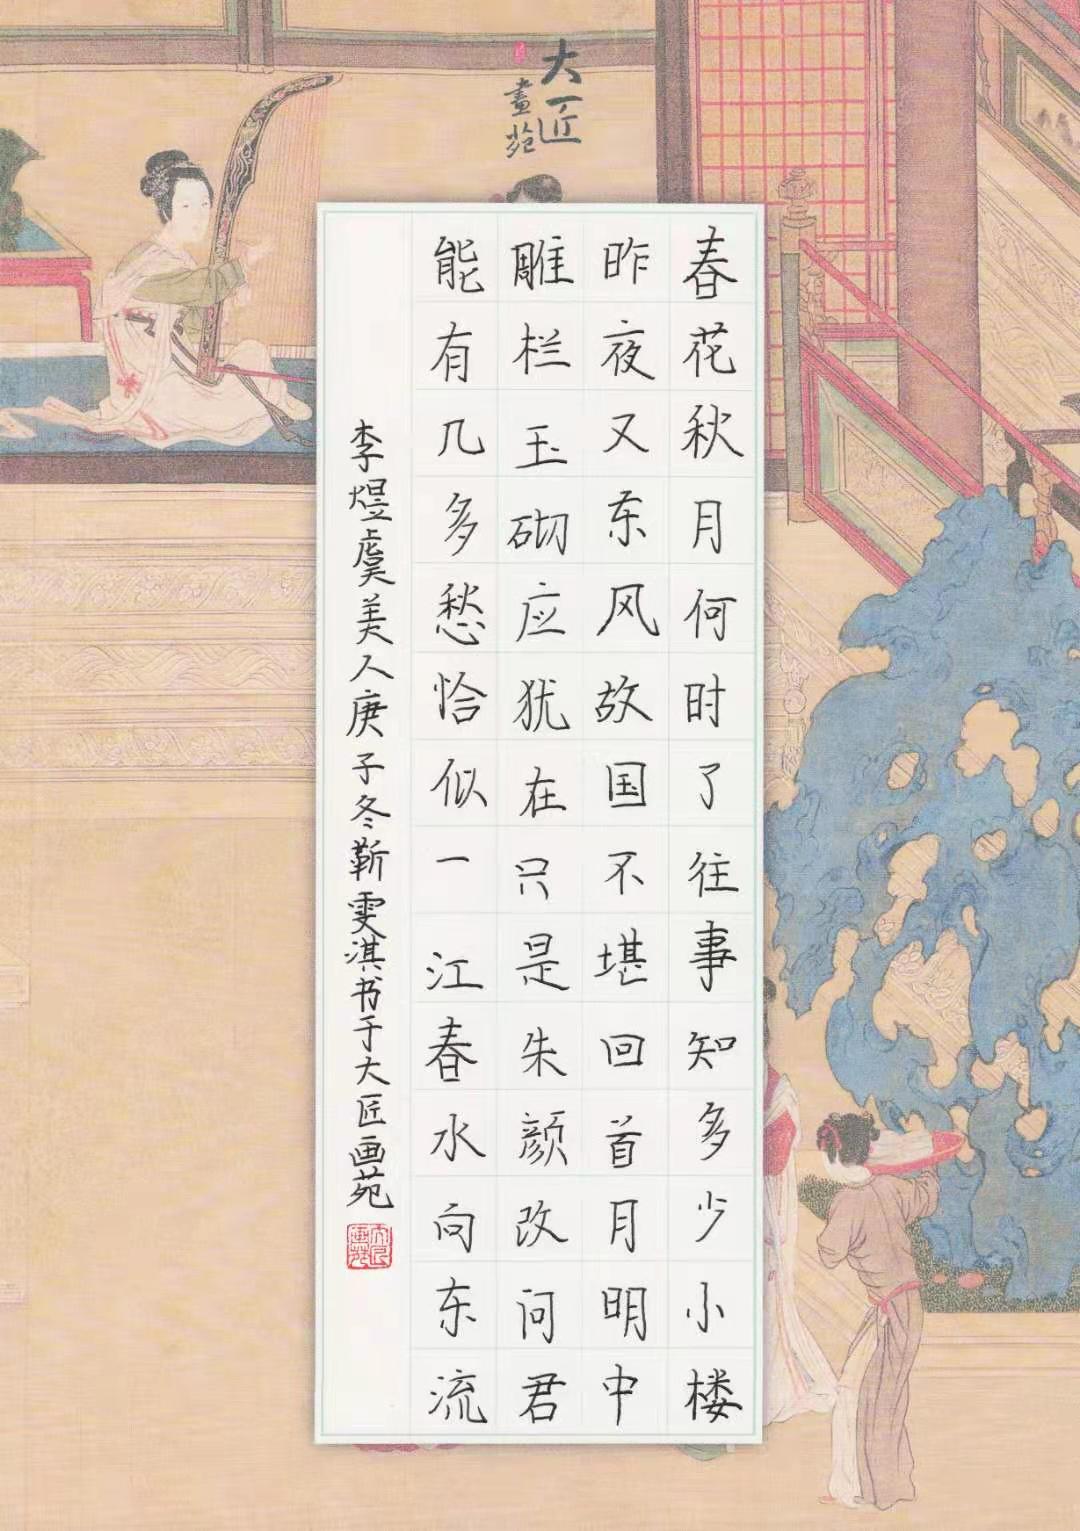 大匠
畫苑
春花秋月何时了往事知多少小楼
昨夜又东风故国不堪回首月明中
雕栏玉砌应犹在只是朱颜改问君
能有几多愁恰似一江春水向东流
李煜虞美人庚子冬靳雯淇书于大匠画苑
大匠
画苑